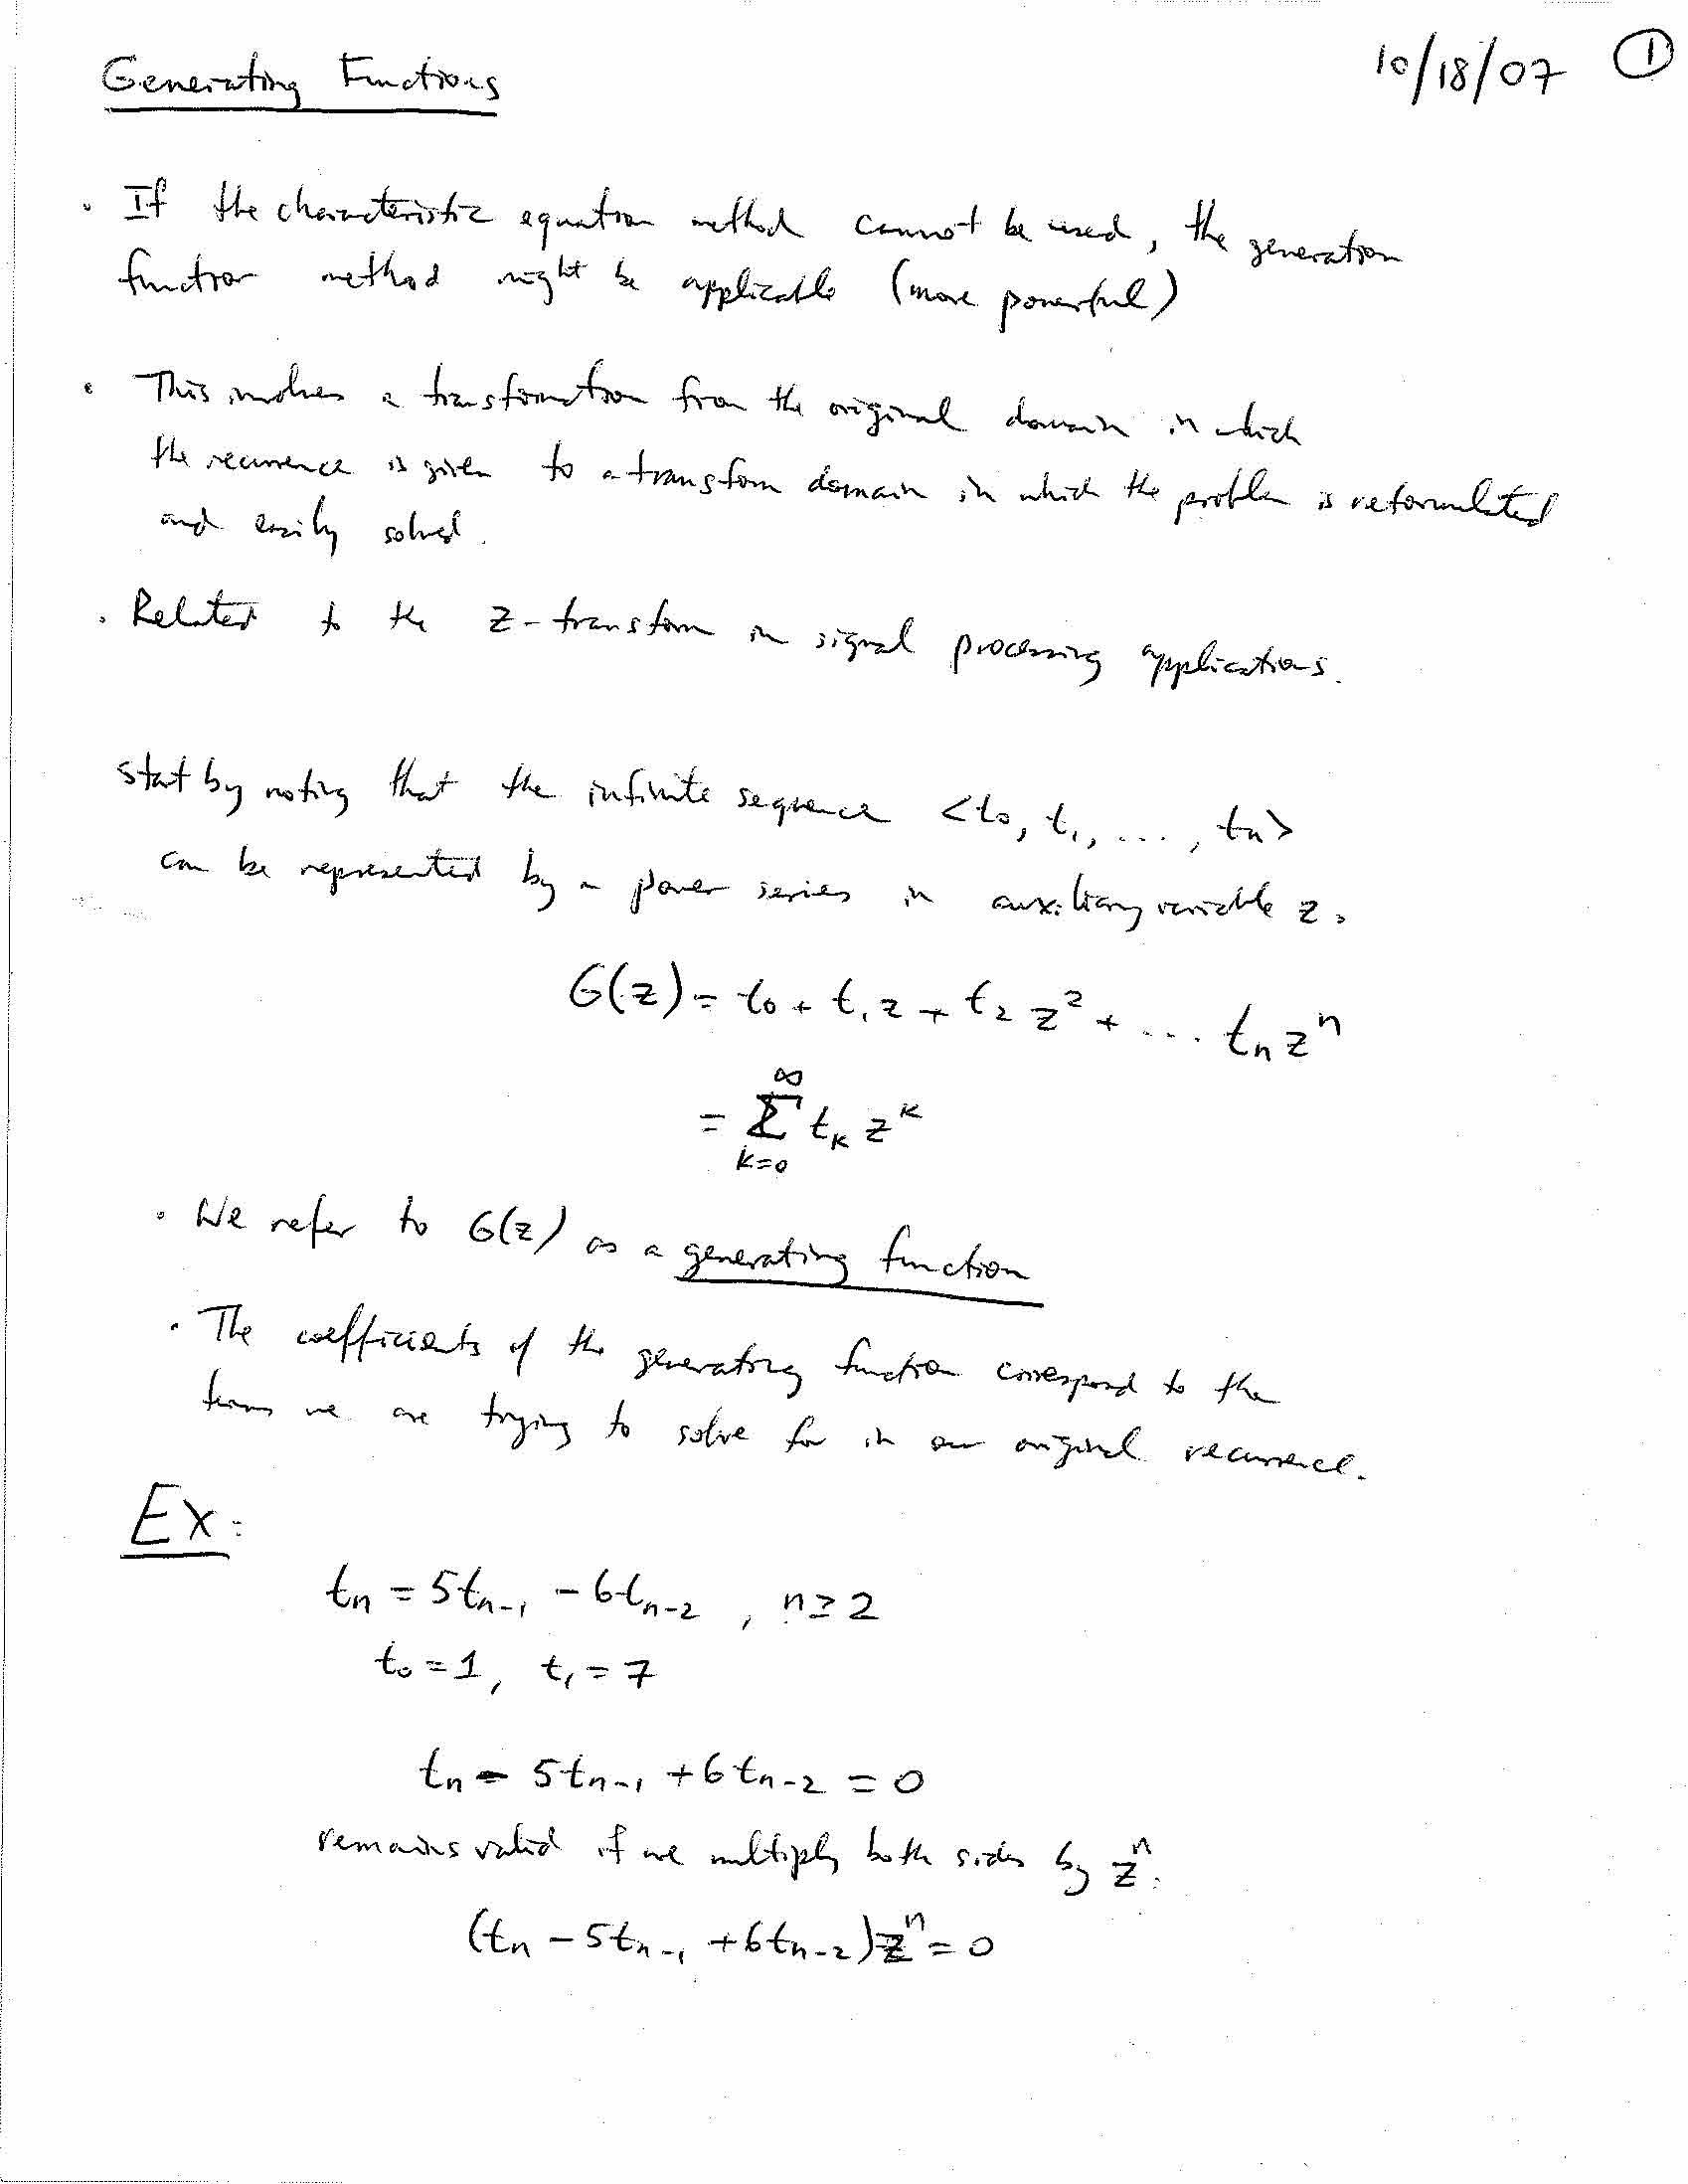 Generating Functions
10/18/07 ①
· If the characteristic equation method cannot be used, the generation
function method might be applicable (more powerful)
· This involves a transformation from the original domain in which
the recurrence is given to a transform domain in which the problem is reformulated
and easily solved.
· Related to the z-transform in signal processing applications.
Start by noting that the infinite sequence <t₀, t₁, ..., tₙ>
can be represented by a power series in auxiliary variable z.
G(z) = t₀ + t₁z + t₂z² + ... tₙzⁿ
= ∞ Σ k=0 tₖ zᵏ
· We refer to G(z) as a generating function
· The coefficients of the generating function correspond to the
terms we are trying to solve for in our original recurrence.
Ex:
tₙ = 5tₙ₋₁ - 6tₙ₋₂ , n ≥ 2
t₀ = 1, t₁ = 7
tₙ - 5tₙ₋₁ + 6tₙ₋₂ = 0
remains valid if we multiply both sides by zⁿ:
(tₙ - 5tₙ₋₁ + 6tₙ₋₂)zⁿ = 0